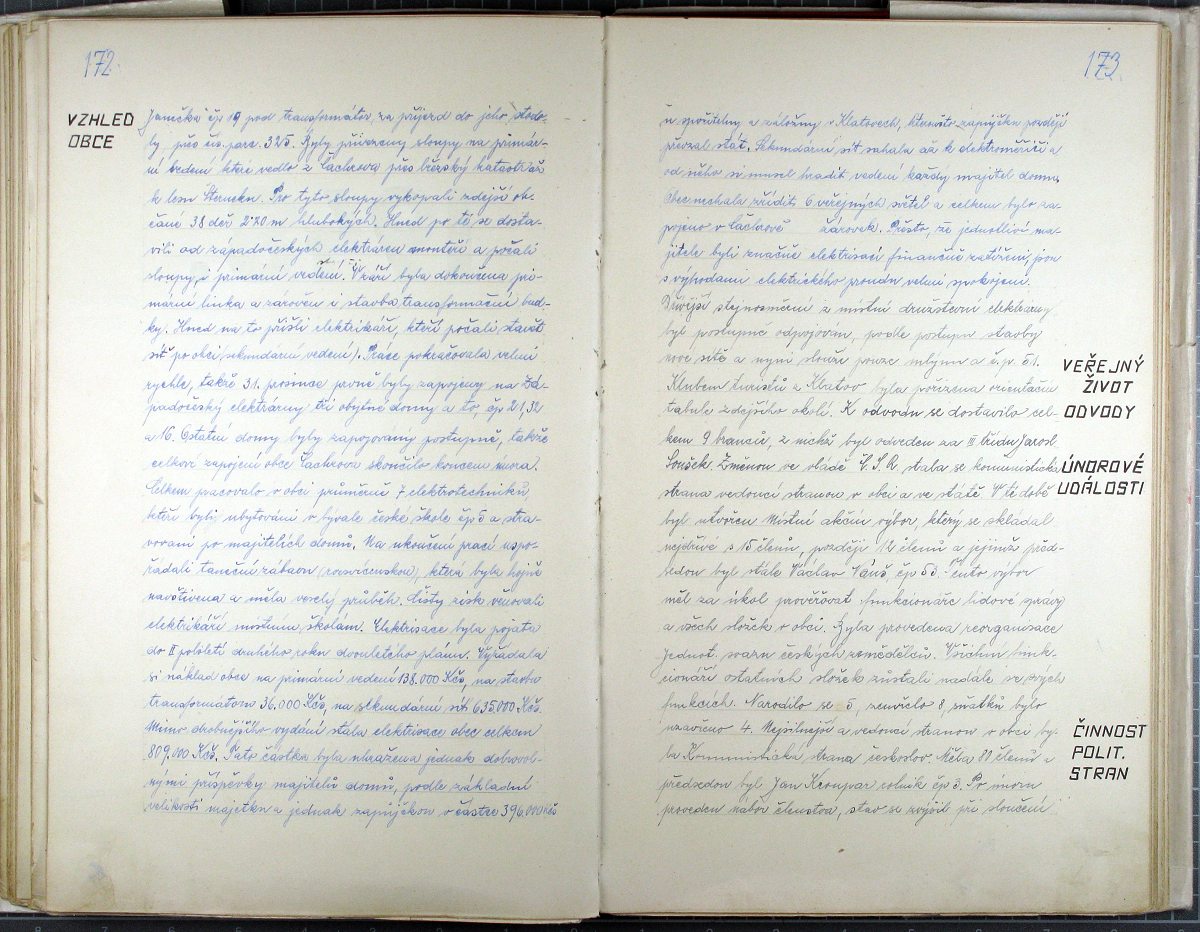 172
VZHLED
OBCE
Janečka čp 19 pod transformátor, za příjezd do jeho stodo-
ly přes čís. parc. 325. Byly přivezeny sloupy na primár-
ní vedení které vedlo z Čachrova přes březský katastr až
k lesu Šterneku. Pro tyto sloupy vykopali zdejší ob-
čané 38 děr 2'20 m hlubokých. Hned po té se dosta-
vili od západočeských elektráren montéři a počali
sloupy i primární vedení. V září byla dokončena pri-
mární linka a zároveň i stavba transformační bud-
ky. Hned na to přišli elektrikáři, kteří počali stavět
síť po obci (sekundární vedení). Práce pokračovala velmi
rychle, takže 31. prosince prvně byly zapojeny na Zá-
padočeský elektrárny tři obytné domy a to, čp 21, 32
a 16. Ostatní domy byly zapojovány postupně, takže
celkové zapojení obce Čachrova skončilo koncem února.
Celkem pracovalo v obci průměrně 7 elektrotechniků
kteří byli ubytováni v bývalé české škole čp 5 a stra-
vováni po majitelích domů. Na ukončení prací uspo-
řádali taneční zábavu (rozsvícenskou), která byla hojně
navštívena a měla veselý průběh. Čistý zisk věnovali
elektrikáři místním školám. Elektrisace byla pojata
do II pololetí druhého roku dvouletého plánu. Vyžádala
si náklad obce na primární vedení 138.000 Kčs, na stavbu
transformátoru 36.000 Kčs, na sekundární síť 635000 Kčs.
Mimo drobnějšího vydání stála elektrisace obec celkem
809.000 Kčs. Tato částka byla uhražena jednak dobrovol-
nými příspěvky majitelů domů, podle základní
velikosti majetku a jednak zápůjčkou v částce 396.000 Kčs
173
u spořitelny a záložny v Klatovech, kteroužto zápůjčku později
převzal stát. Sekundární síť sahala až k elektroměřiči a
od něho si musel hradit vedení každý majitel domu.
Obec nechala zříditi 6 veřejných světel a celkem bylo za-
pojeno v Čachrově žárovek. Přesto, že jednotliví ma-
jitelé byli značně elektrisací finančně zatíženi, jsou
s výhodami elektrického proudu velmi spokojeni.
Dřívější stejnosměrní z místní družstevní elektrárny
byl postupně odpojován, podle postupu stavby
nové sítě a nyní slouží pouze mlýnu a č.p. 51.
VEŘEJNÝ
ŽIVOT
Klubem turistů z Klatov byla pořízena orientační
tabule zdejšího okolí. K odvodu se dostavilo cel-
ODVODY
kem 9 branců, z nichž byl odveden za II třídu Jarosl
Soušek. Změnou ve vládě Č.S.R. stala se komunistická
ÚNOROVÉ
UDÁLOSTI
strana vedoucí stranou v obci a ve státě. V té době
byl utvořen Místní akční výbor, který se skládal
nejdříve s 15 členů, později 12 členů a jejímž před-
sedou byl stále Václav Váňš čp 53. Tento výbor
měl za úkol prověřovat funkcionáře lidové správy
a všech složek v obci. Byla provedena reorganisace
Jednot. svazu českých zemědělců. Všichni funk-
cionáři ostatních složek zůstali nadále ve svých
funkcích. Narodilo se 5, zemřelo 8, sňatků bylo
uzavřeno 4. Nejsilnější a vedoucí stranou v obci by-
ČINNOST
POLIT.
STRAN
la Komunistická strana českoslov. Měla 80 členů a
předsedou byl Jan Kroupar rolník čp 3. Po únoru
proveden nábor členstva, stav se zvýšil při sloučení